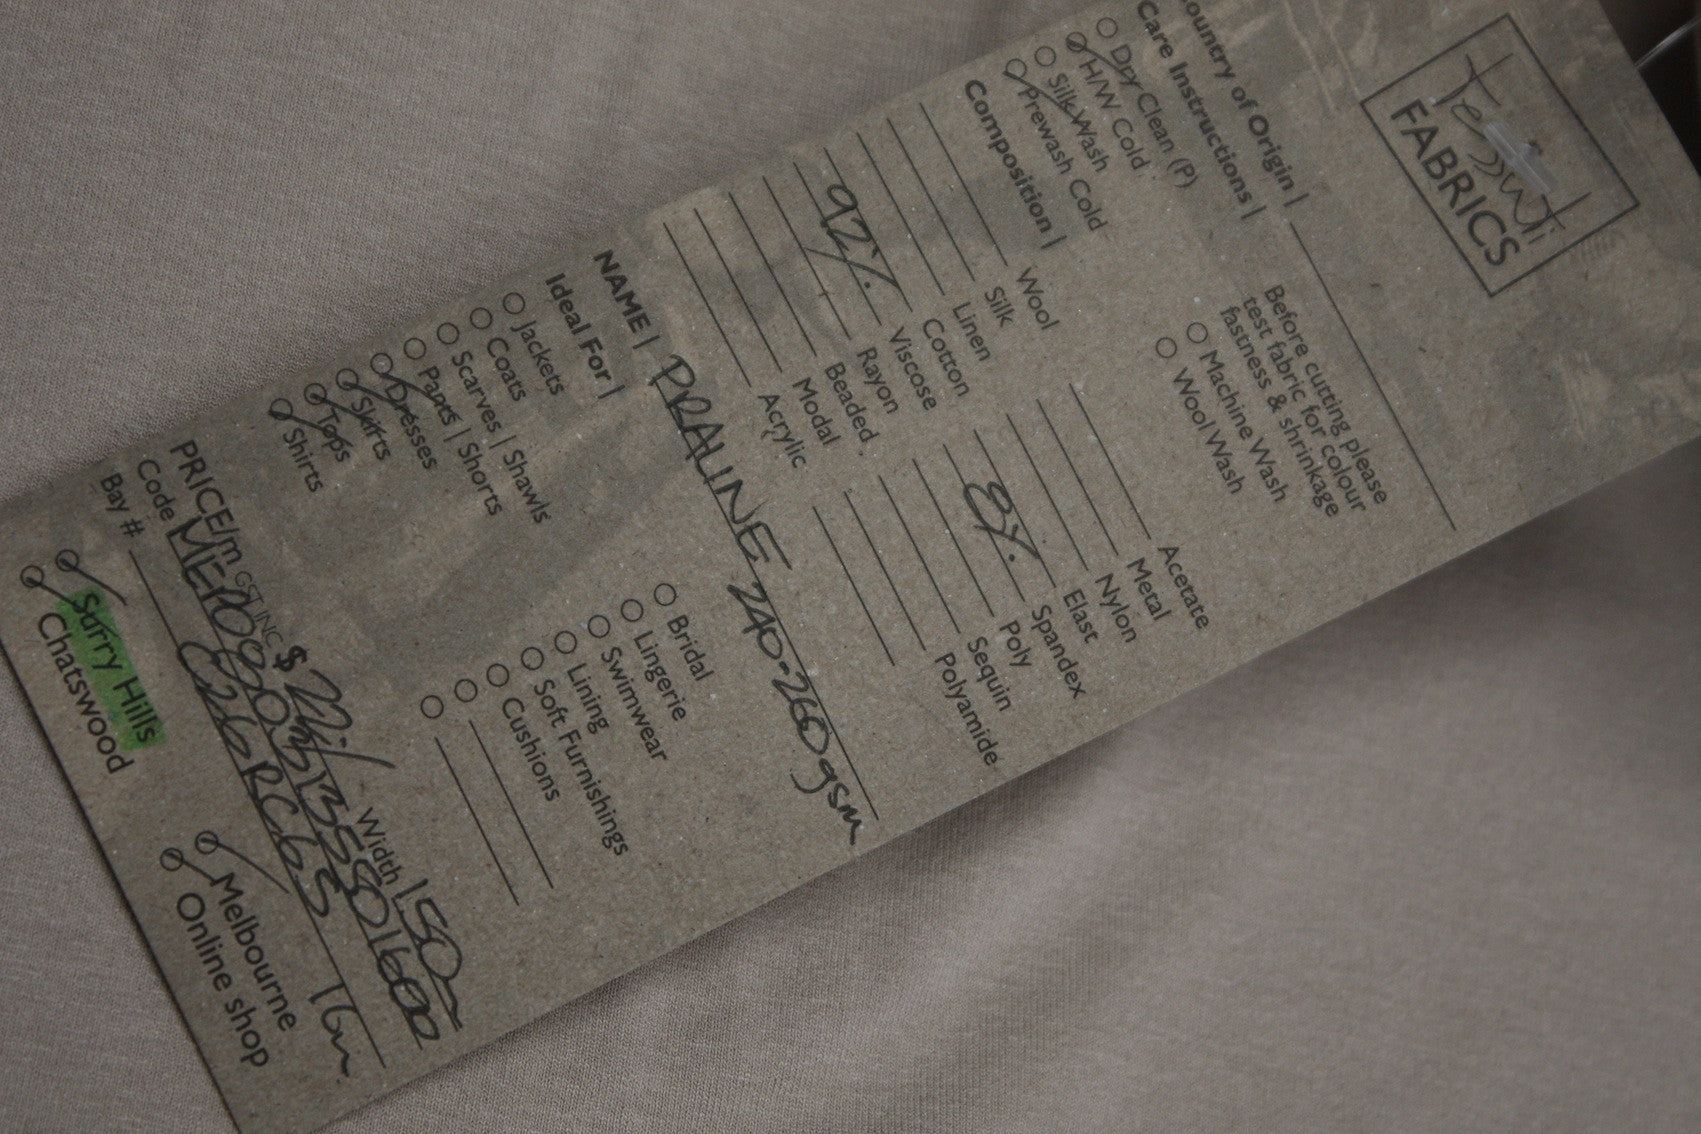 Tessuti
FABRICS
Country of Origin |
Care Instructions |
Dry Clean (P)
H/W Cold
Silk Wash
Prewash Cold
Before cutting please
test fabric for colour
fastness & shrinkage
Machine Wash
Wool Wash
Composition |
Wool
Silk
Linen
Cotton
92% Viscose
Rayon
Beaded
Modal
Acrylic
Acetate
Metal
Nylon
Elast
8% Spandex
Poly
Sequin
Polyamide
NAME | PRALINE 240-260gsm
Ideal For |
Jackets
Coats
Scarves | Shawls
Pants | Shorts
Dresses
Skirts
Tops
Shirts
Bridal
Lingerie
Swimwear
Lining
Soft Furnishings
Cushions
PRICE/m GST INC $22/ Width 150
Code
Bay #
Surry Hills
Chatswood
Melbourne
Online shop